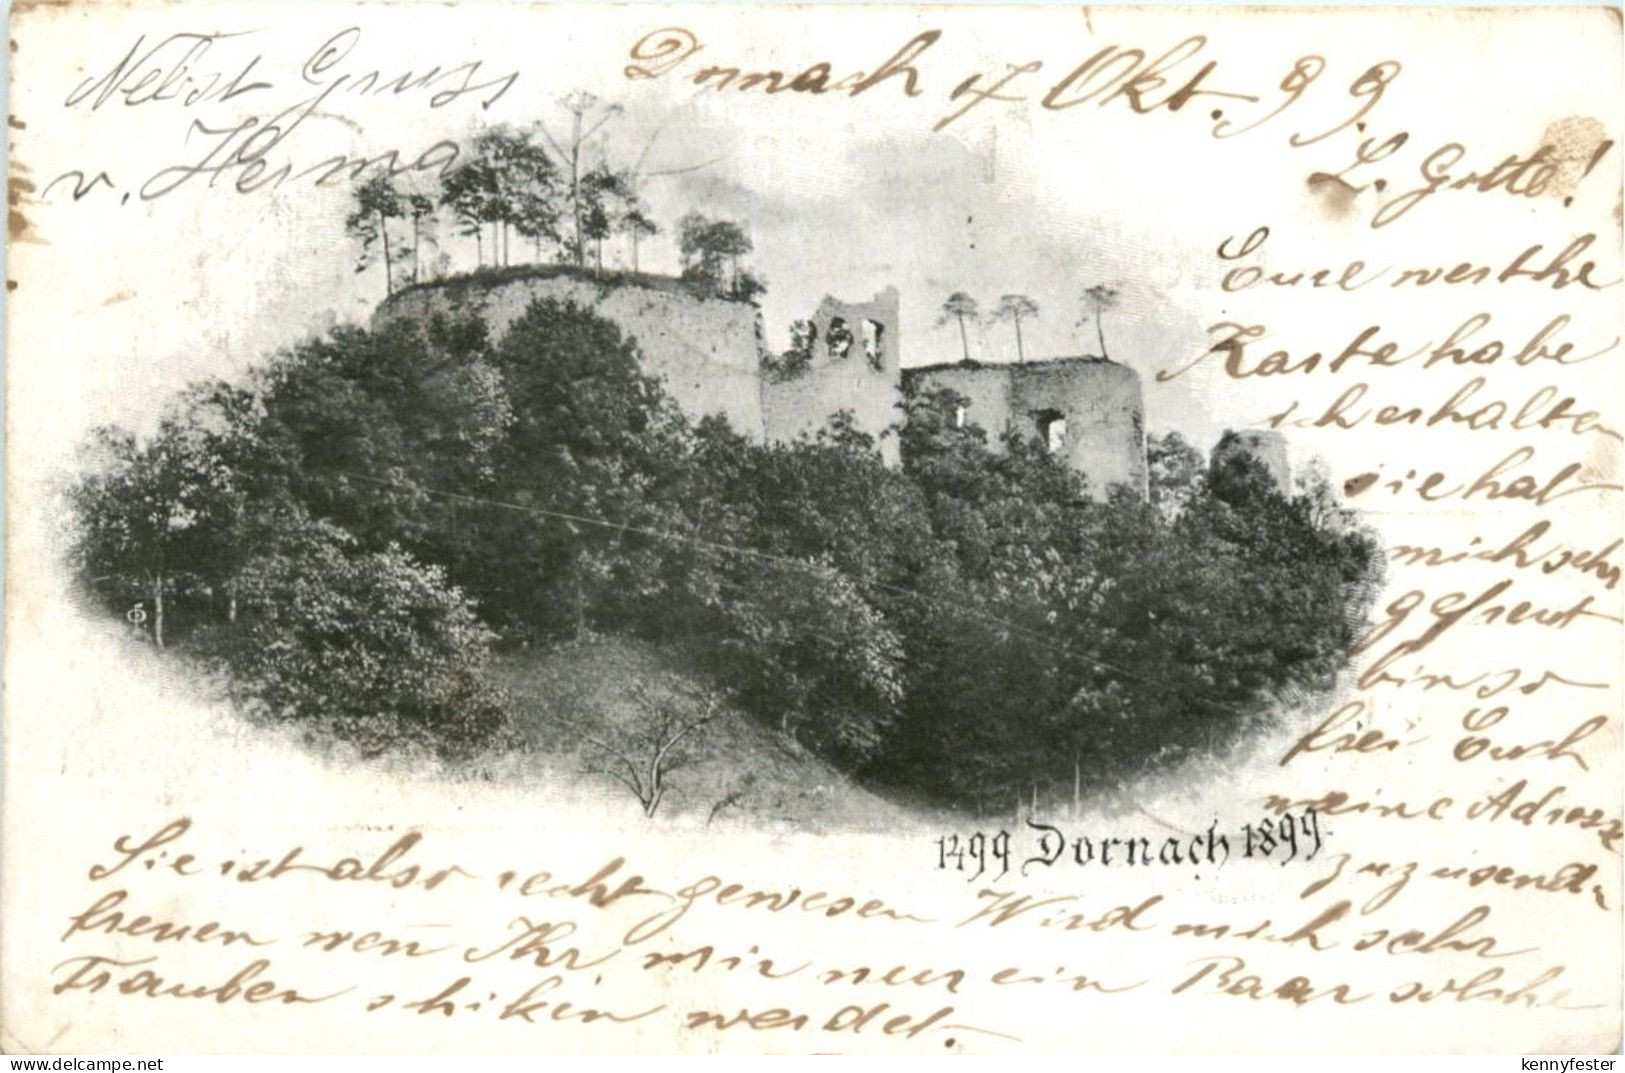 Nebst Gruss
v. Herma
Dornach 17 Okt. 99.
L. Gotte!
Eure werthe
Karte habe
ich erhalten
sie hat
mich sehr
gefreut
bin so
frei Euch
meine Adresse
zuzusenden
1499 Dornach 1899
Sie ist also recht gewesen Wird mich sehr
freuen wen Ihr mir nur ein Baar solche
Trauben shiken werdet.
kennyfester